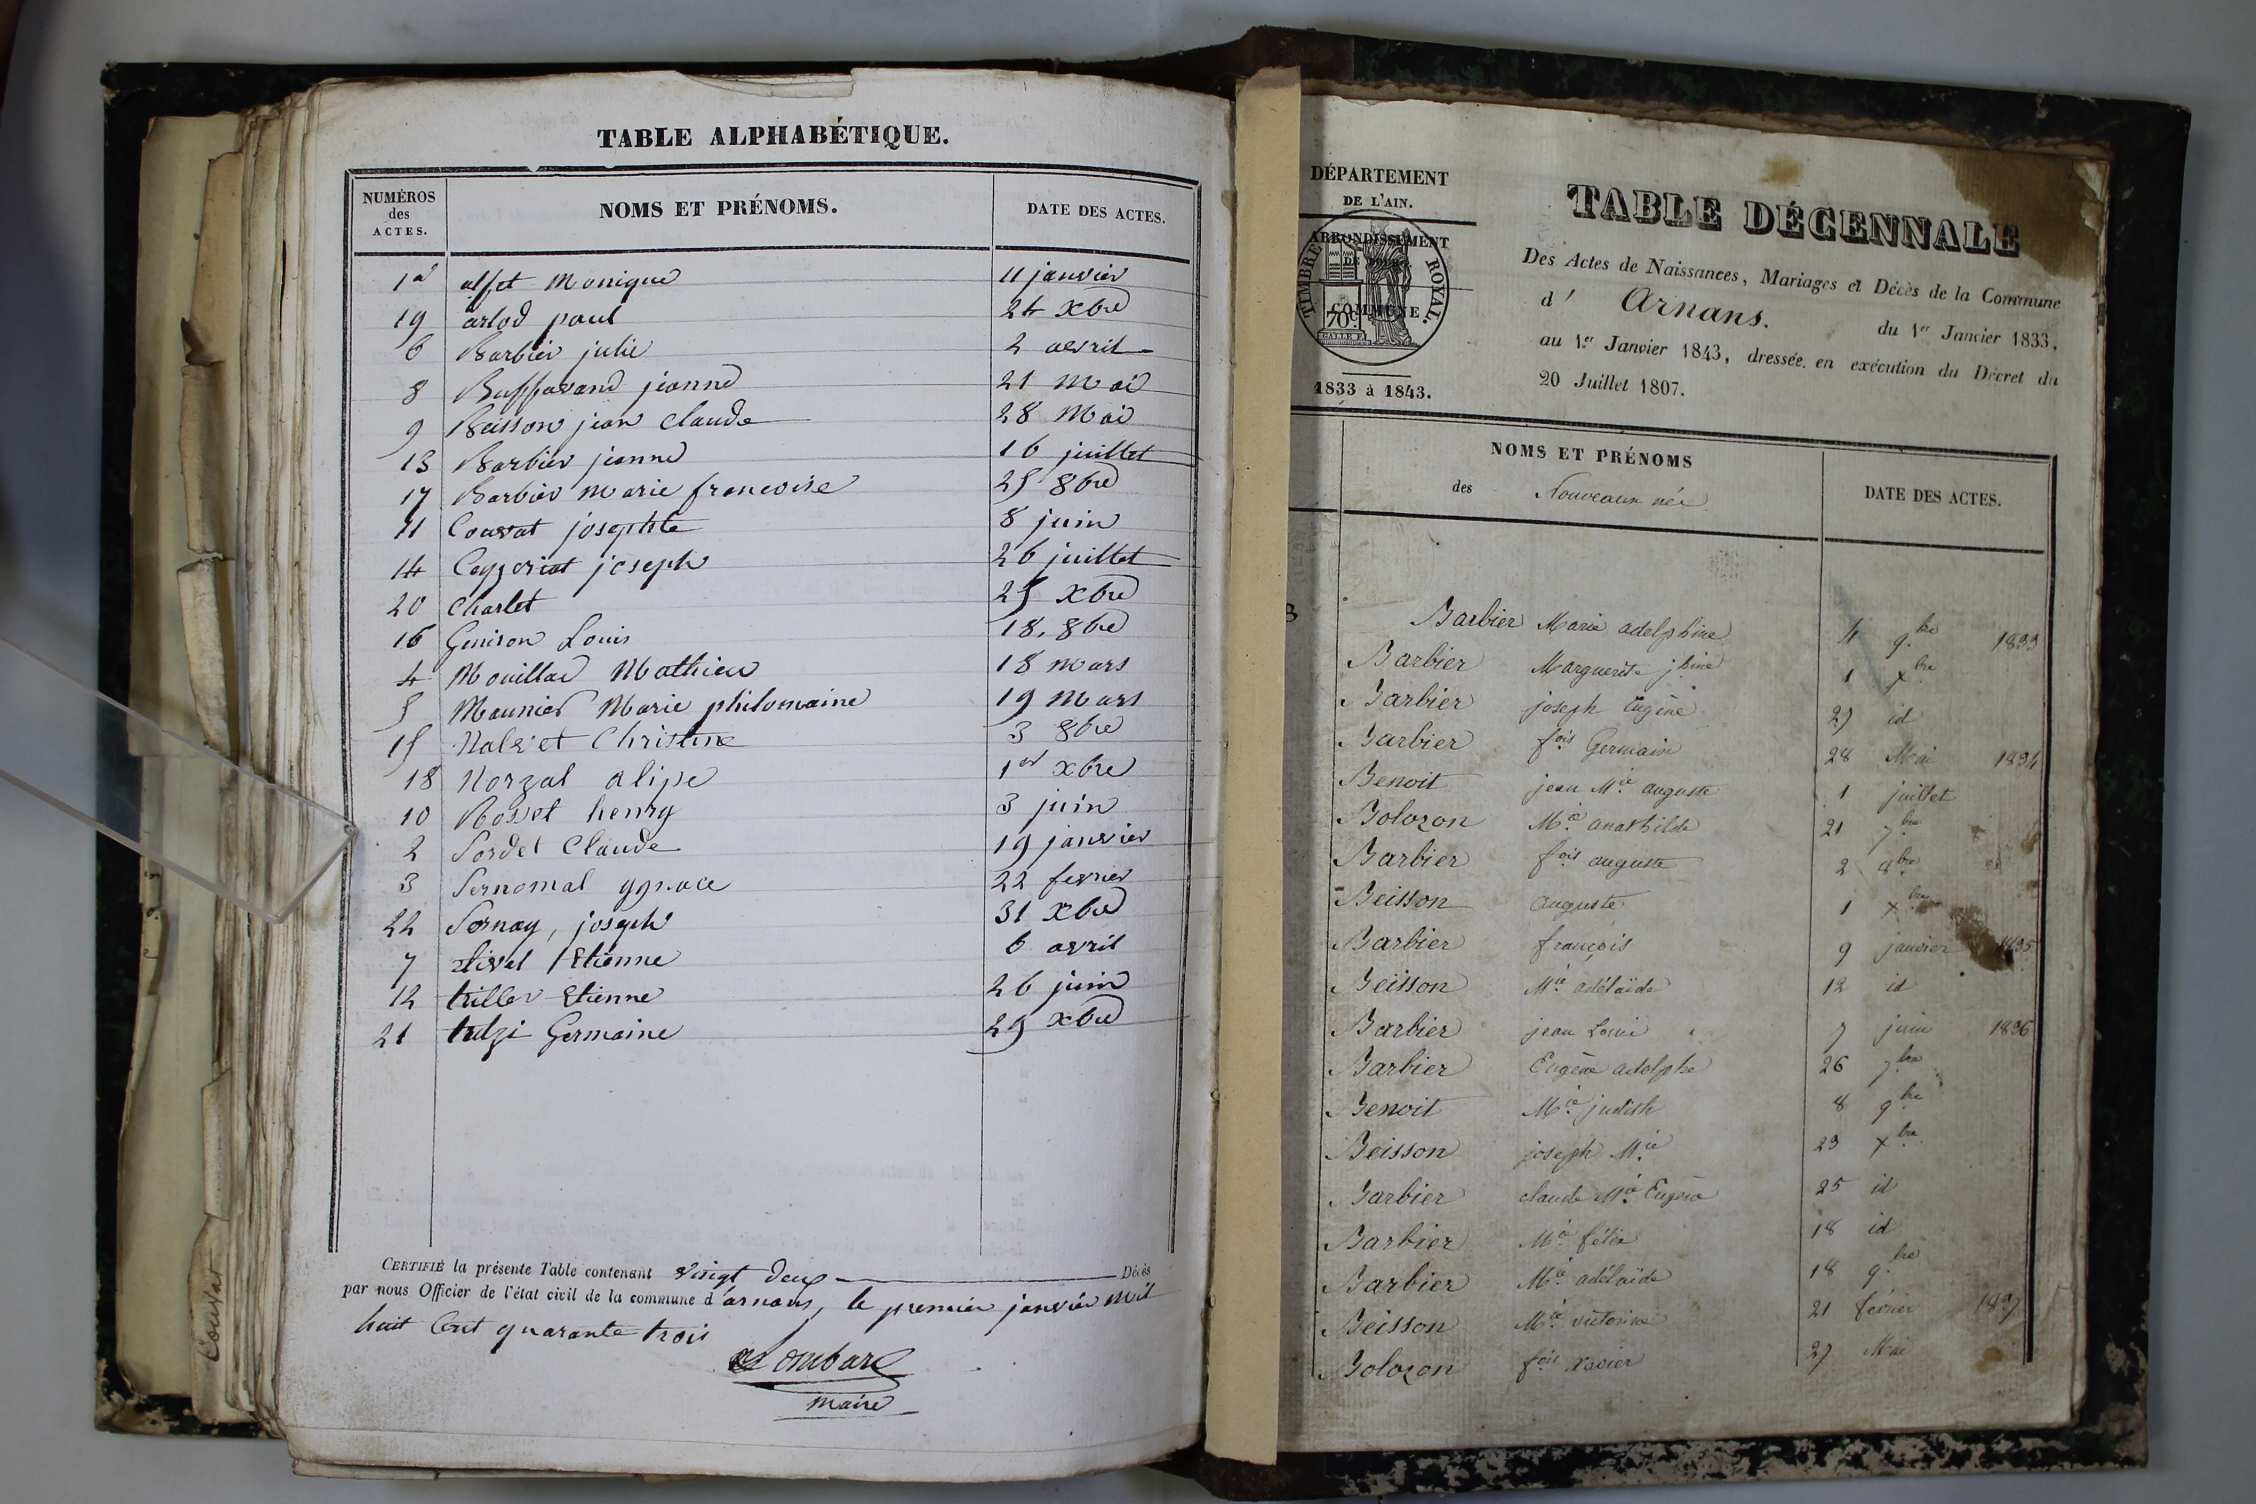 TABLE ALPHABÉTIQUE.
NUMÉROS des ACTES. NOMS ET PRÉNOMS. DATE DES ACTES.
1er alfet Monique 11 janvier
19 arlod paul 24 Xbre
6 Barbier julie 2 avril
8 Buffavand jeanne 21 Mai
9 Beisson jean Claude 28 Mai
13 Barbier jeanne 16 juillet
17 Barbier Marie francoise 25 8bre
11 Couvat josephte 8 juin
14 Ceyzeriat joseph 26 juillet
20 Charlet 25 Xbre
16 Genison Louis 18. 8bre
4 Mouillad Mathieu 18 Mars
5 Maunier Marie philomaine 19 Mars
15 Nalvet Christine 3 8bre
18 Norzal alipe 1er Xbre
10 Rosset henry 3 juin
2 Sordel Claude 19 janvier
3 Sernomal ygnace 22 fevrier
22 Sornay, joseph 31 Xbre
7 Etienne 6 avril
12 triller Etienne 26 juin
21 Germaine 29 Xbre
CERTIFIÉ la présente Table contenant vingt deux Décès
par nous Officier de l'état civil de la commune d'arnans, le premier janvier Mil
huit Cent quarante trois
Lombard
Maire
Couvat
DÉPARTEMENT
DE L'AIN.
ARRONDISSEMENT
DE BOURG.
COMMUNE
TIMBRE ROYAL.
70c
1833 à 1843.
TABLE DÉCENNALE
Des Actes de Naissances, Mariages et Décès de la Commune
d' Arnans. du 1er Janvier 1833,
au 1er Janvier 1843, dressée en exécution du Décret du
20 Juillet 1807.
NOMS ET PRÉNOMS
des Nouveaux nés DATE DES ACTES.
B
Barbier Marie adelphine 4 9.bre 1833
Barbier Marguerite jhine 1 xbre
Barbier joseph Eugène 27 id
Barbier fois Germain 28 Mai 1834
Benoit jean Mie auguste 1 juillet
Bolozon Mie anathilde 21 7bre
Barbier fois auguste 2 8bre
Beisson auguste 1 xbre
Barbier françois 9 janvier 1835
Beisson Mie adélaïde 12 id
Barbier jean Louis 7 juin 1836
Barbier Eugène adolphe 26 7bre
Benoit Mie judith 8 9bre
Beisson joseph Mie 23 xbre
Barbier claude Mie Eugène 25 id
Barbier Mie félix 18 id
Barbier Mie adélaïde 18 9.bre
Beisson Mie victorine 21 février 1837
Bolozon fois xavier 27 Mai